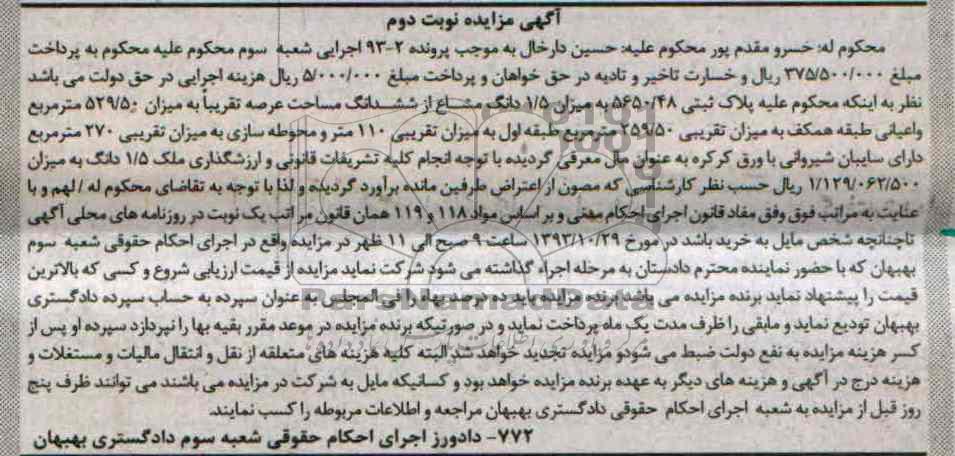 آگهی مزایده نوبت دوم
محکوم له: خسرو مقدم پور محکوم علیه: حسین دارخال به موجب پرونده ۲-۹۳ اجرایی شعبه سوم محکوم علیه محکوم به پرداخت
مبلغ ۳۷۵/۵۰۰/۰۰۰ ریال و خسارت تاخیر و تادیه در حق خواهان و پرداخت مبلغ ۵/۰۰۰/۰۰۰ ریال هزینه اجرایی در حق دولت می باشد
نظر به اینکه محکوم علیه پلاک ثبتی ۵۶۵۰/۴۸ به میزان ۱/۵ دانگ مشاع از ششدانگ مساحت عرصه تقریباً به میزان ۵۲۹/۵۰ مترمربع
واعیانی طبقه همکف به میزان تقریبی ۲۵۹/۵۰ مترمربع طبقه اول به میزان تقریبی ۱۱۰ متر و محوطه سازی به میزان تقریبی ۲۷۰ مترمربع
دارای سایبان شیروانی با ورق کرکره به عنوان مال معرفی گردیده با توجه انجام کلیه تشریفات قانونی و ارزشگذاری ملک ۱/۵ دانگ به میزان
۱/۱۲۹/۰۶۲/۵۰۰ ریال حسب نظر کارشناسی که مصون از اعتراض طرفین مانده برآورد گردیده و لذا با توجه به تقاضای محکوم له / لهم و با
عنایت به مراتب فوق وفق مفاد قانون اجرای احکام مدنی و بر اساس مواد ۱۱۸ و ۱۱۹ همان قانون مراتب یک نوبت در روزنامه های محلی آگهی
تاچنانچه شخص مایل به خرید باشد در مورخ ۱۳۹۳/۱۰/۲۹ ساعت ۹ صبح الی ۱۱ ظهر در مزایده واقع در اجرای احکام حقوقی شعبه سوم
بهبهان که با حضور نماینده محترم دادستان به مرحله اجراء گذاشته می شود شرکت نماید مزایده از قیمت ارزیابی شروع و کسی که بالاترین
قیمت را پیشنهاد نماید برنده مزایده می باشد برنده مزایده باید ده درصد بهاء را فی المجلس به عنوان سپرده به حساب سپرده دادگستری
بهبهان تودیع نماید و مابقی را ظرف مدت یک ماه پرداخت نماید و در صورتیکه برنده مزایده در موعد مقرر بقیه بها را نپردازد سپرده او پس از
کسر هزینه مزایده به نفع دولت ضبط می شودو مزایده تجدید خواهد شد البته کلیه هزینه های متعلقه از نقل و انتقال مالیات و مستغلات و
هزینه درج در آگهی و هزینه های دیگر به عهده برنده مزایده خواهد بود و کسانیکه مایل به شرکت در مزایده می باشند می توانند ظرف پنج
روز قبل از مزایده به شعبه اجرای احکام حقوقی دادگستری بهبهان مراجعه و اطلاعات مربوطه را کسب نمایند.
۷۷۲- دادورز اجرای احکام حقوقی شعبه سوم دادگستری بهبهان
ParsNamadData